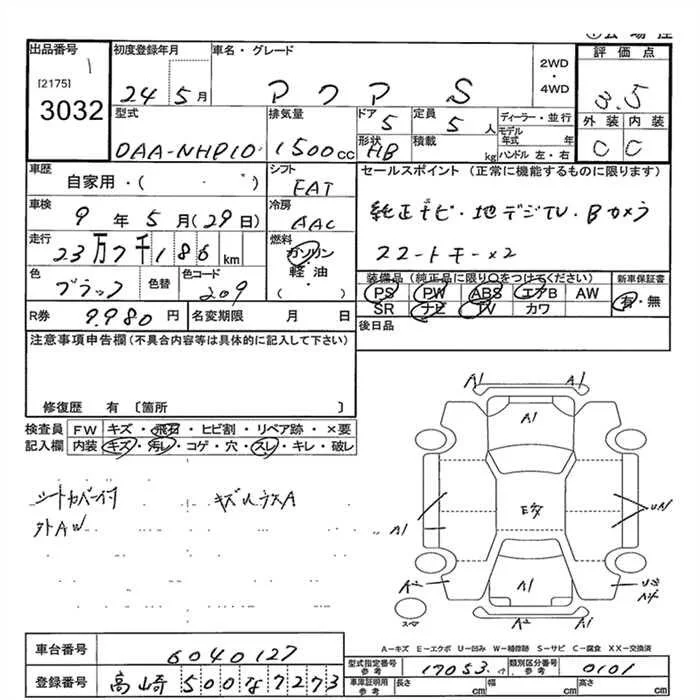 出品番号 1
[2175]
3032
初度登録年月
24 5月
車名・グレード
アクア S
2WD
・
4WD
評価点
3.5
外装 内装
C C
型式
DAA-NHP10
排気量
1500cc
ドア
5
定員
5人
形状
HB
積載
kg
ディーラー・並行
モデル年式 年
ハンドル 左・右
車歴
自家用・( )
シフト
FAT
車検
9年5月(29日)
冷房
AAC
走行
23万7千186km
燃料
ガソリン
・
軽・油
( )
色
ブラック
色替
色コード
209
R券
9.980円
名変期限 月 日
セールスポイント (正常に機能するものに限ります)
純正ナビ・地デジTV・Bカメラ
スマートキー×2
装備品(純正品に限り○をつけてください)
PS PW ABS エアB AW
SR ナビ TV カワ
新車保証書
有・無
後日品
注意事項申告欄(不具合内容等は具体的に記入して下さい)
修復歴 有〔箇所 〕
検査員 FW キズ・飛石・ヒビ割・リペア跡・×要
記入欄 内装 キズ・汚レ・コゲ・穴・スレ・キレ・破レ
シートカバー付
外AW
A1 A1
A1
A1
Eタ
A2
A1
A2 A1
スペア
A-キズ E-エクボ U-凹み W-補修跡 S-サビ C-腐食 XX-交換済
車台番号
6040127
登録番号
高崎 500 な 7273
型式指定番号
参考
17053
類別区分番号
参考
0101
車庫証明用
参考
長さ cm
幅 cm
高さ cm